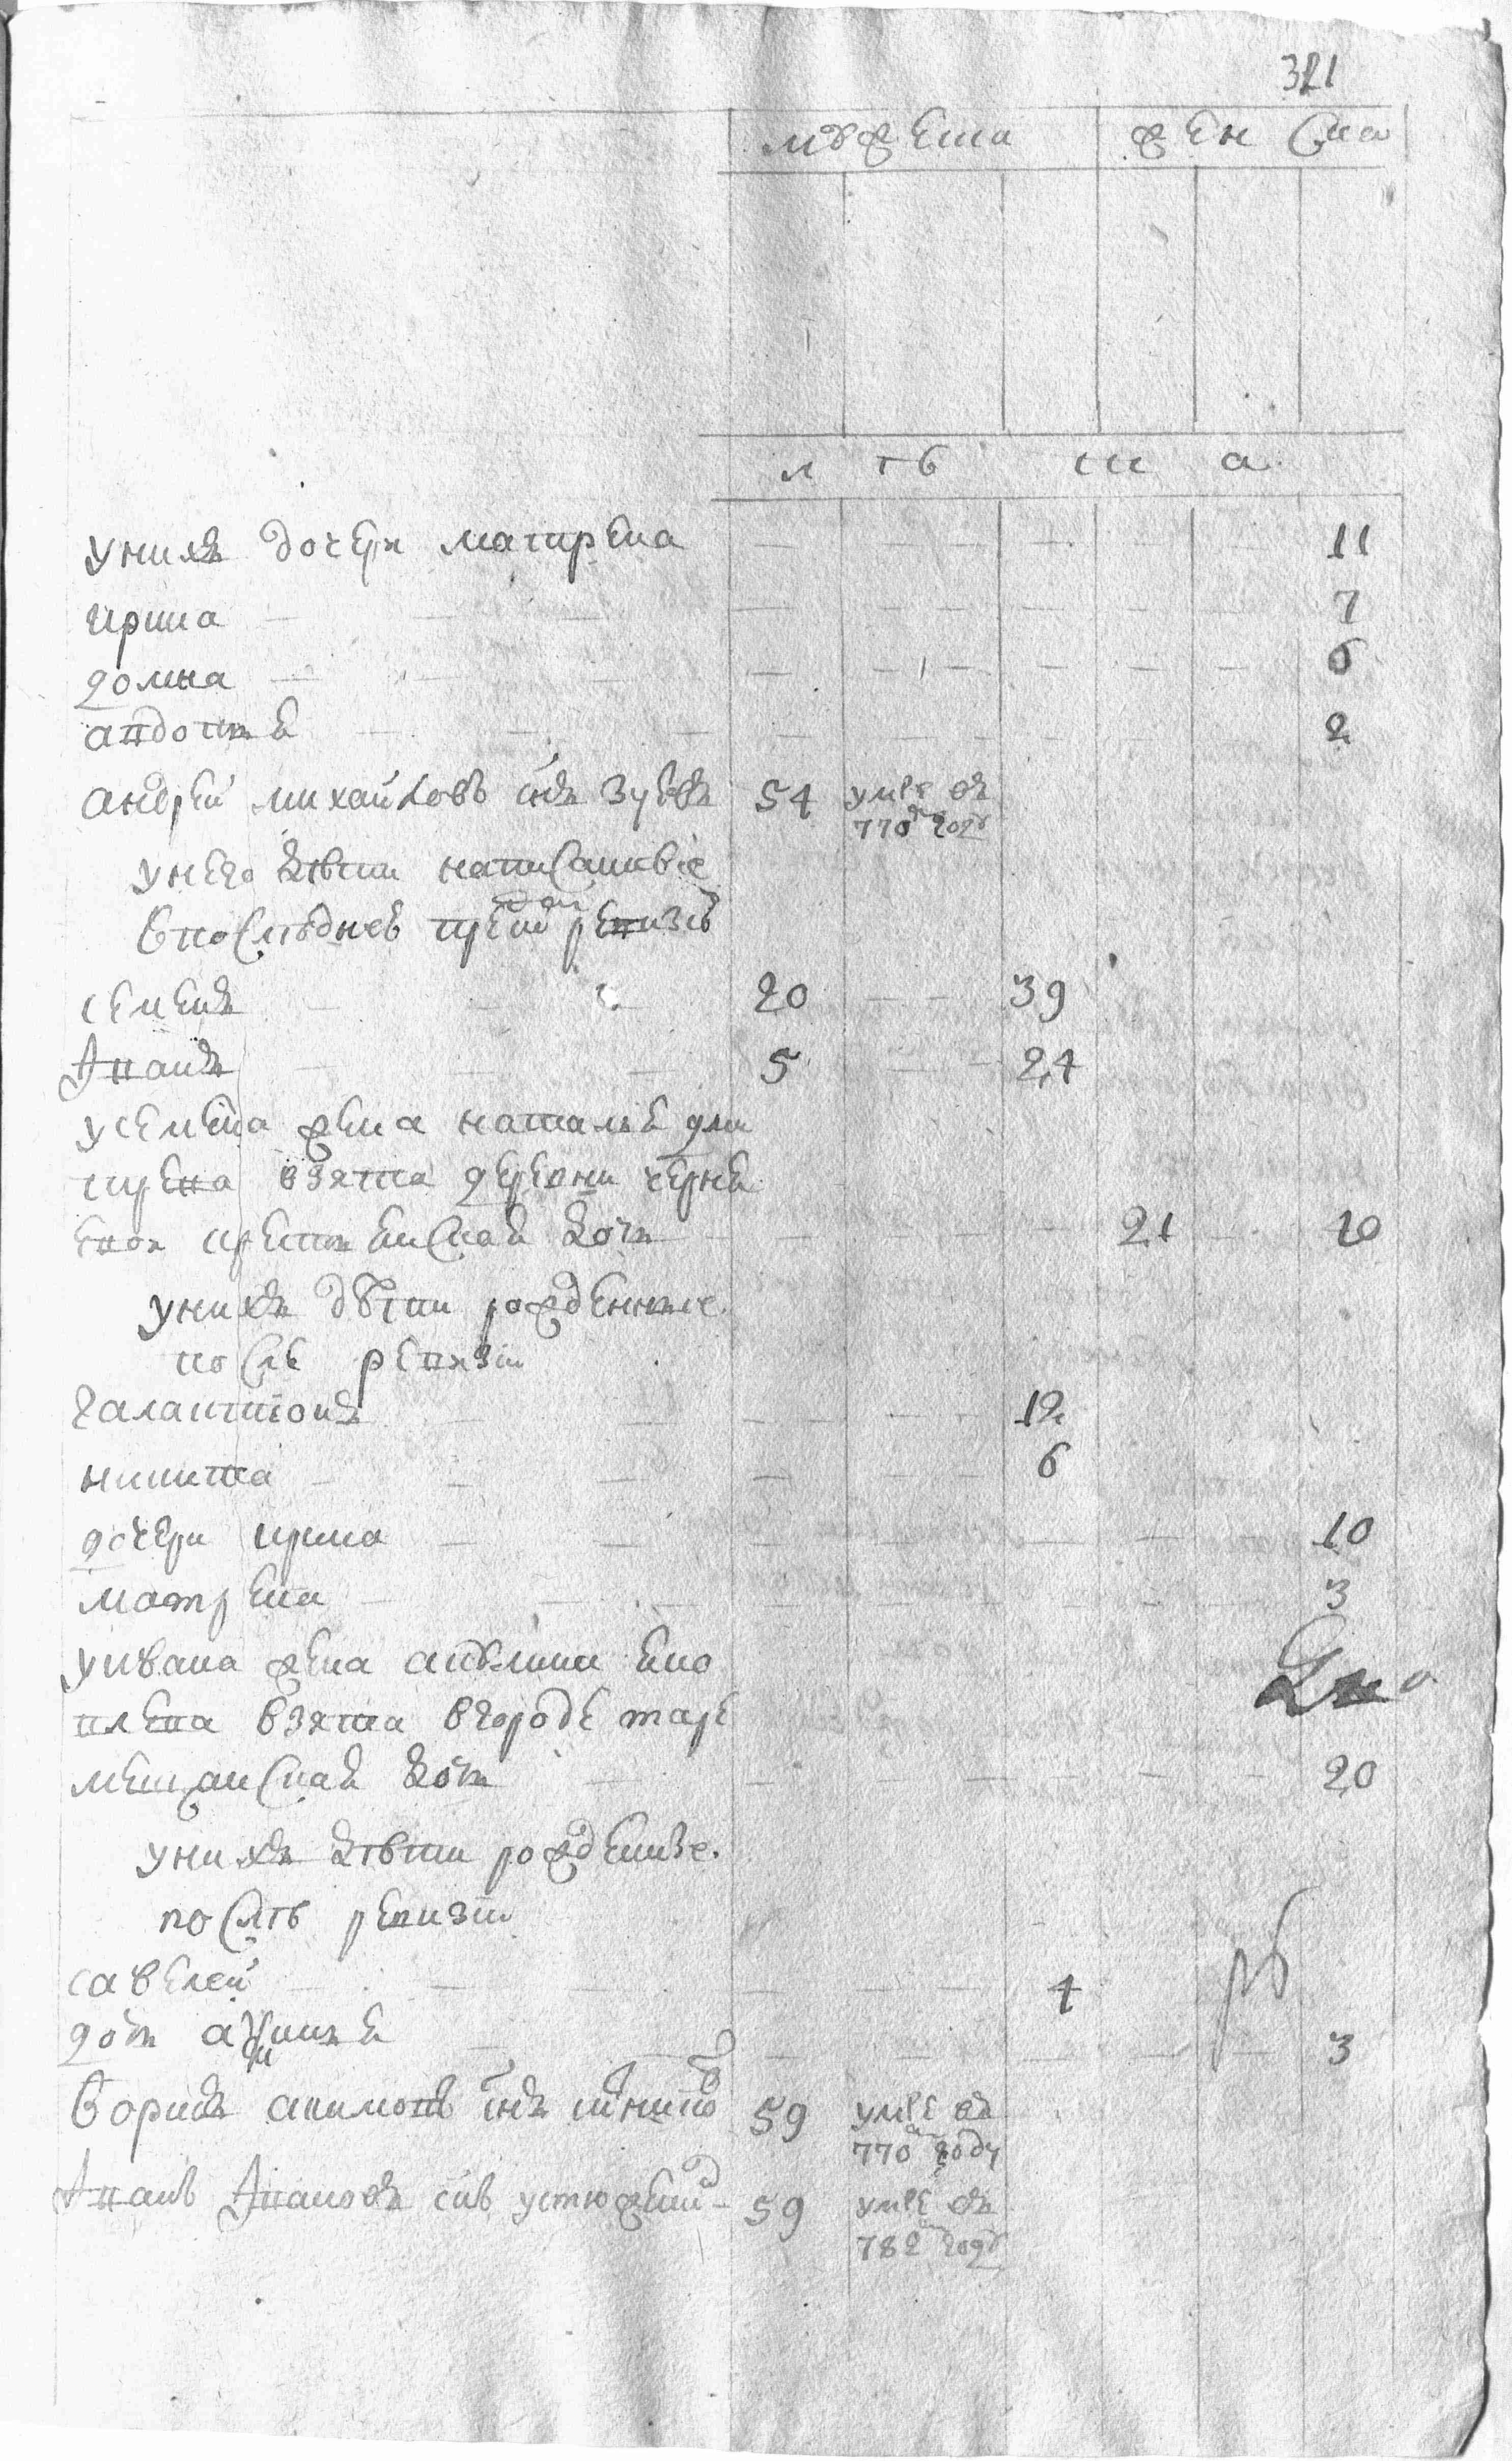 321
мужеска женска
лѣта
у нихъ дочери матрена 11
ирина 7
домна 6
авдотья 2
андрей михайловъ снъ зуевъ 54 умре въ
770м году
у него дѣти написанные
в последнеѣ пред сей ревизіѣ
семенъ 20 39
Иванъ 5 24
у семена жена наталья дми
трева взята деревни черня
евой крестьянская дочь 21 40
у нихъ дѣти рожденные
после ревизіи
галактіонъ 12
никита 6
дочери ирина 10
матрена 3
у ивана жена
взята в городе таре
мещанская дочь 20
у нихъ дѣти рожденные
послѣ ревизіи
савелей 4
дочь 3
борисъ акимовъ снъ 59 умре въ
770м году
Иванъ Ивановъ снъ устюжении 59 умре въ
782м году